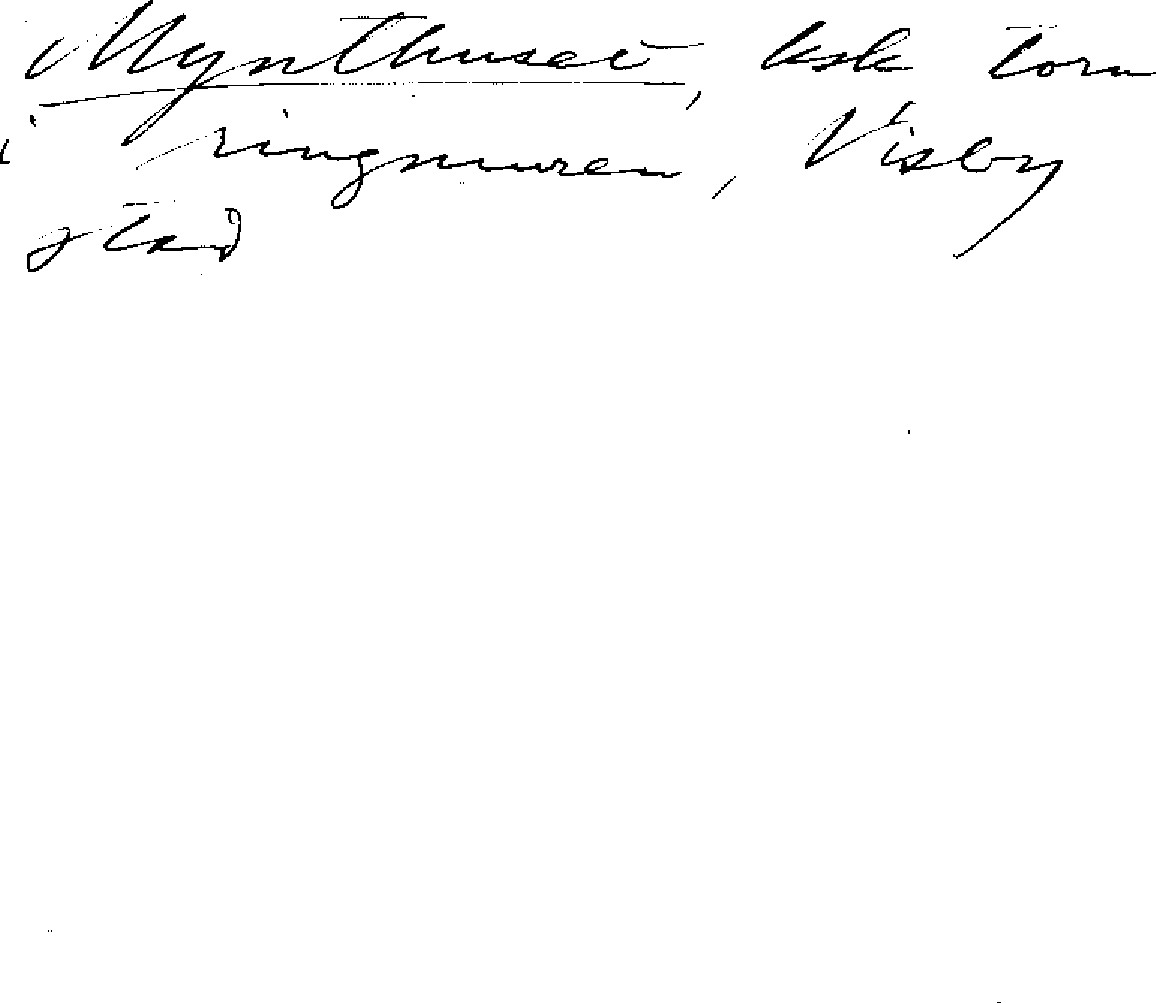 Mynthuset, ksk torn
i ringmuren, Visby
stad